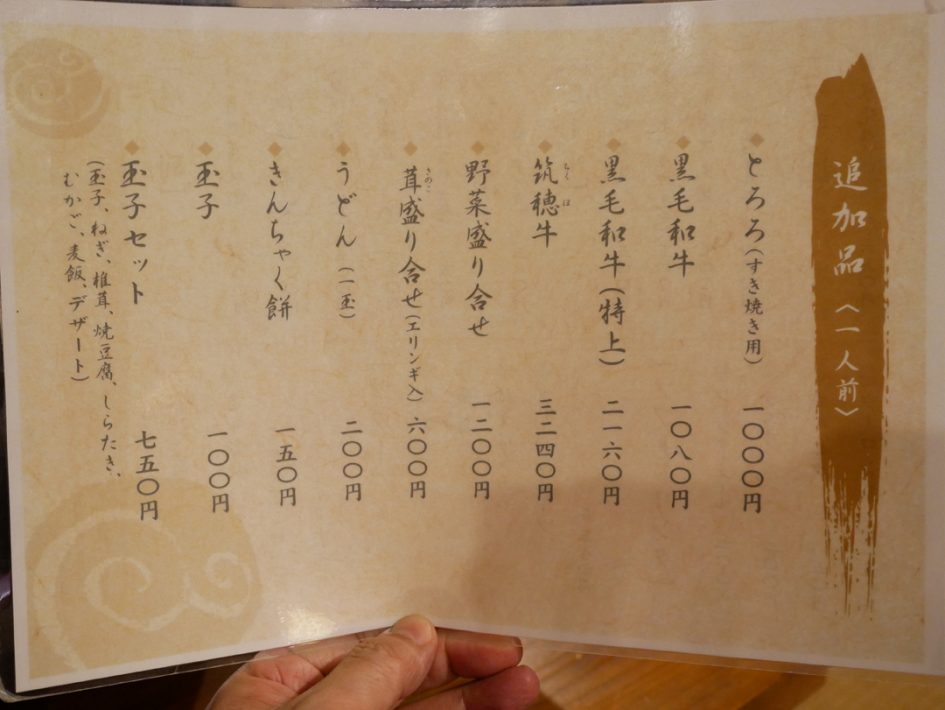 追加品〈一人前〉
とろろ(すき焼き用) 一〇〇〇円
黒毛和牛 一〇八〇円
黒毛和牛(特上) 二一六〇円
筑穂牛 三二四〇円
ちくほ
野菜盛り合せ 一二〇〇円
茸盛り合せ(エリンギ入) 六〇〇円
きのこ
うどん(一玉) 二〇〇円
きんちゃく餅 一五〇円
玉子 一〇〇円
玉子セット 七五〇円
(玉子、ねぎ、椎茸、焼豆腐、しらたき、
むかご、麦飯、デザート)